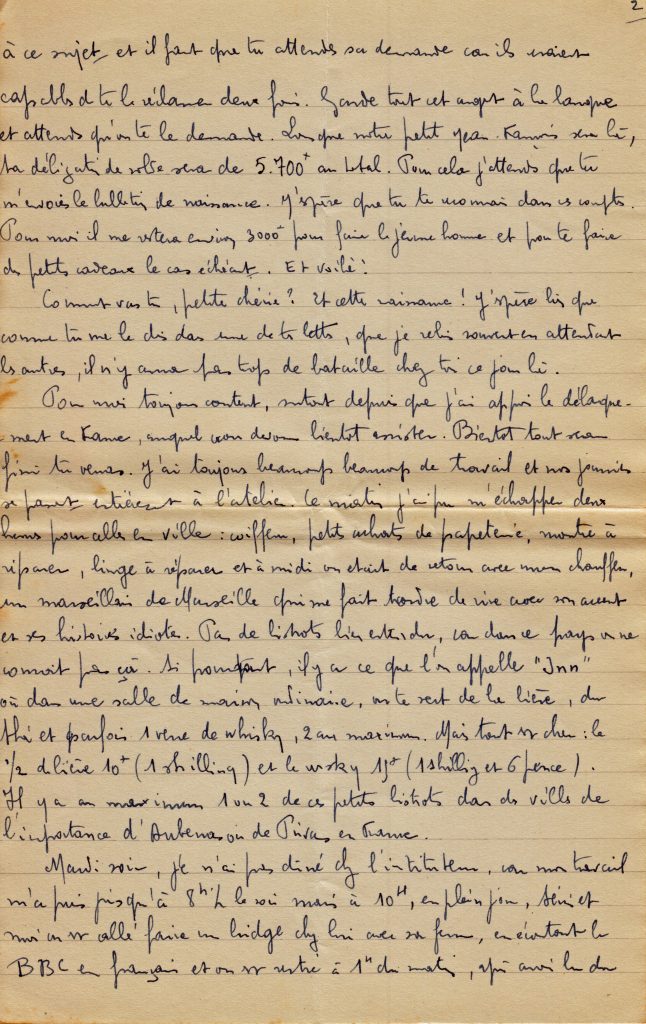 2
à ce sujet et il faut que tu attendes sa demande car ils seraient
capables de te le réclamer deux fois. Garde tout cet argent à la banque
et attends qu'on te le demande. Lorsque notre petit Jean-François sera là,
ta délégation de solde sera de 5.700 au total. Pour cela j'attends que tu
m'envoies le bulletin de naissance. J'espère que tu te reconnais dans ces comptes.
Pour moi il me restera environ 3000 pour faire le jeune homme et pour te faire
des petits cadeaux le cas échéant. Et voilà !
Comment vas tu, petite chérie ? Et cette naissance ! J'espère bien que
comme tu me le dis dans une de tes lettres, que je relis souvent en attendant
les autres, il n'y aura pas trop de bataille chez toi ce jour là.
Pour moi toujours content, surtout depuis que j'ai appris le débarque-
ment en France, auquel nous devons bientôt assister. Bientôt tout sera
fini tu verras. J'ai toujours beaucoup beaucoup de travail et nos journées
se passent entièrement à l'atelier. Ce matin j'ai pu m'échapper deux
heures pour aller en ville : coiffeur, petits achats de papeterie, montre à
réparer, linge à réparer et à midi on était de retour avec mon chauffeur,
un marseillais de Marseille qui me fait tordre de rire avec son accent
et ses histoires idiotes. Pas de bistrots bien entendu, car dans ce pays on ne
connait pas çà. Si pourtant, il y a ce que l'on appelle "Inn"
où dans une salle de maison ordinaire, on te sert de la bière, du
thé et parfois 1 verre de whisky, 2 au maximum. Mais tout est cher : le
1/2 de bière 10 (1 shilling) et le wisky 15 (1 shilling et 6 pence).
Il y a au maximum 1 ou 2 de ces petits bistrots dans des villes de
l'importance d'Aubenas ou de Privas en France.
Mardi soir, je n'ai pas diné chez l'instituteur, car mon travail
m'a pris jusqu'à 8h 1/2 le soir mais à 10H, en plein jour, et
moi on est allé faire un bridge chez lui avec sa femme, en écoutant la
BBC en français et on est resté à 1H du matin, après avoir bu du